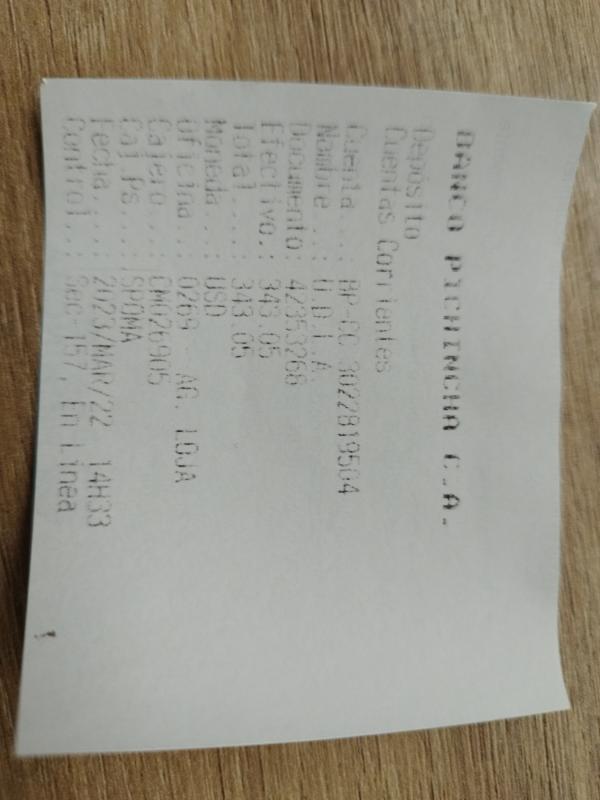 BANCO PICHINCHA C.A.
Depósito
Cuentas Corrientes
Cuenta...: BP-CC 3022819504
Nombre...: U.D.L.A.
Documento: 42353268
Efectivo.: 343.05
Total....: 343.05
Moneda...: USD
Oficina..: 0269 - AG. LOJA
Cajero...: CM026905
Caj Ps...: SPDMA
Fecha....: 2023/MAR/22 14H33
Control..: Sec-157, En Linea